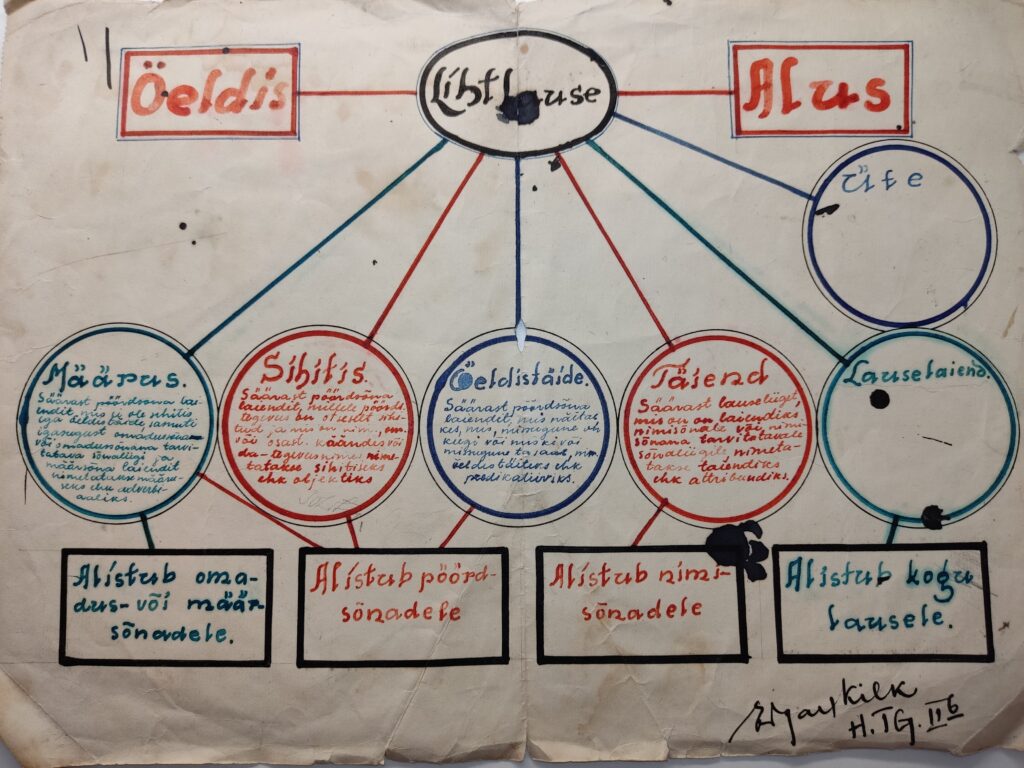 Öeldis
Lihtlause
Alus
Üte
Määrus.
Säärast pöördsõna lai-
endit, mis ei ole sihitis
ega öeldistäide, samuti
igasugust omadussõna
või omadussõnana tarvi-
tatava sõnaliigi ja
määrsõna laiendit
nimetatakse määru-
seks ehk adverb-
aaliks.
Sihitis.
Säärast pöördsõna
laiendit, millele pöörd-
tegevus on otseselt sih-
tud ja mis on nim., om.
või osast. käändes või
da-tegevusnimes nime-
tatakse sihitiseks
ehk objektiks
Öeldistäide.
Säärast pöördsõna
laiendit, mis näitab,
kes, mis, missugune on
keegi või miski või
missugune ta saab,
öeldistäiteks ehk
predikatiiviks.
Täiend
Säärast lauseliiget,
mis on on laiendiks
nimisõnale või nimi-
sõnana tarvitatavale
sõnaliigile nimeta-
takse täiendiks
ehk atribuudiks.
Lauselaiend.
Alistub oma-
dus- või määr
sõnadele.
Alistub pöörd-
sõnadele
Alistub nimi-
sõnadele
Alistub kogu
lausele.
Kilk
H.TG. IIb